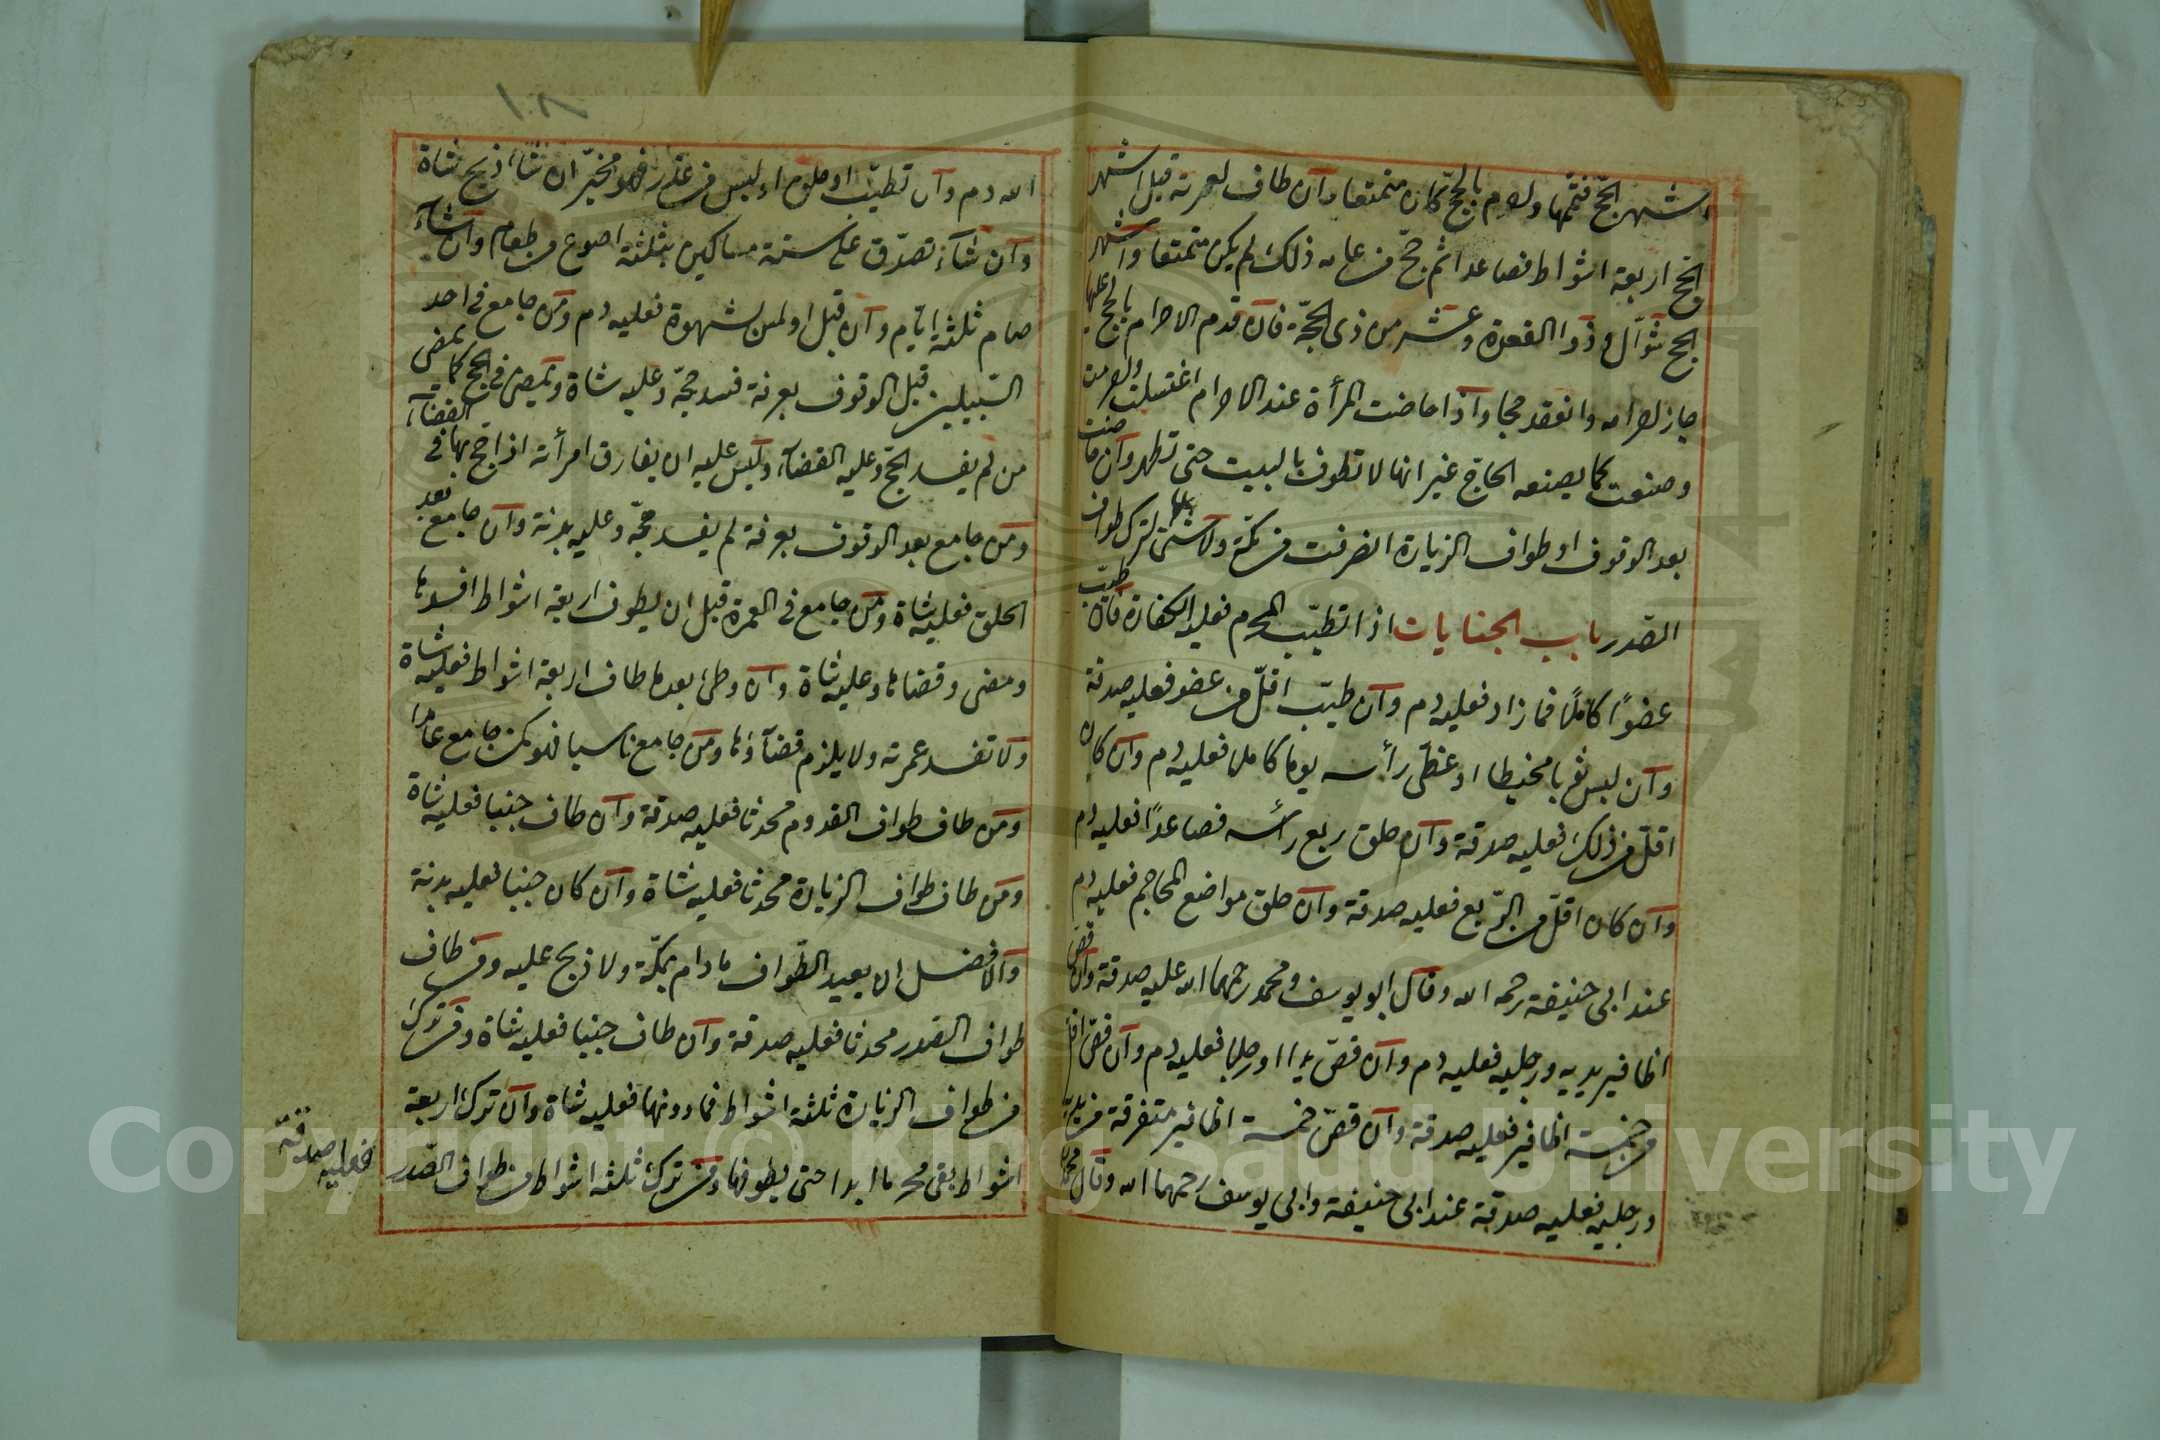 اشهر الحج فتممها واحرم بالحج كان متمتعا وان طاف لعمرته قبل اشهر
الحج اربعة اشواط فصاعدا ثم حج من عامه ذلك لم يكن متمتعا واشهر
الحج شوال وذوا القعدة وعشر من ذى الحجة فان قدم الاحرام بالحج عليها
جاز احرامه وانعقد حجا واذا حاضت المرأة عند الاحرام اغتسلت واحرمت
وصنعت كما يصنعه الحاج غير انها لا تطوف بالبيت حتى تطهر وان حاضت
بعد الوقوف او طواف الزيارة انصرفت من مكة ولا شئ عليها لترك طواف
الصدر باب الجنايات اذا تطيب المحرم فعليه الكفارة فان طيب
عضوا كاملا فما زاد فعليه دم وان طيب اقل من عضو فعليه صدقة
وان لبس ثوبا مخيطا او غطى رأسه يوما كاملا فعليه دم وان كان
اقل من ذلك فعليه صدقة وان حلق ربع رأسه فصاعدا فعليه دم
وان كان اقل من الربع فعليه صدقة وان حلق مواضع المحاجم فعليه دم
عند ابى حنيفة رحمه الله وقال ابو يوسف ومحمد رحمهما الله عليه صدقة وان قص
اظافير يديه ورجليه فعليه دم وان قص يدا او رجلا فعليه دم وان قص اقل
من خمسة اظافير فعليه صدقة وان قص خمسة اظافير متفرقة من يديه
ورجليه فعليه صدقة عند ابى حنيفة وابى يوسف رحمهما الله وقال محمد
الله دم وان تطيب او حلق او لبس من عذر فهو مخير ان شاء ذبح شاة
وان شاء تصدق على ستة مساكين بثلثة اصوع من طعام وان شاء
صام ثلثة ايام وان قبل او لمس لشهوة فعليه دم ومن جامع فى احد
السبيلين قبل الوقوف بعرفة فسد حجه وعليه شاة ويمضى فى الحج كما يمضى
من لم يفسد الحج وعليه القضاء وليس عليه ان يفارق امرأته اذا حج بها فى القضاء
ومن جامع بعد الوقوف بعرفة لم يفسد حجه وعليه بدنة وان جامع بعد
الحلق فعليه شاة ومن جامع فى العمرة قبل ان يطوف اربعة اشواط افسدها
ومضى وقضاها وعليه شاة وان وطئ بعدها طاف اربعة اشواط فعليه شاة
ولا تفسد عمرته ولا يلزم قضاؤها ومن جامع ناسيا فهو كمن جامع عامدا
ومن طاف طواف القدوم محدثا فعليه صدقة وان طاف جنبا فعليه شاة
ومن طاف طواف الزيارة محدثا فعليه شاة وان كان جنبا فعليه بدنة
والافضل ان يعيد الطواف ما دام بمكة ولا ذبح عليه ومن طاف
طواف الصدر محدثا فعليه صدقة وان طاف جنبا فعليه شاة ومن ترك
من طواف الزيارة ثلثة اشواط فما دونها فعليه شاة وان ترك اربعة
اشواط بقى محرما ابدا حتى يطوفها ومن ترك ثلثة اشواط من طواف الصدر
فعليه صدقة
Copyright © King Saud University